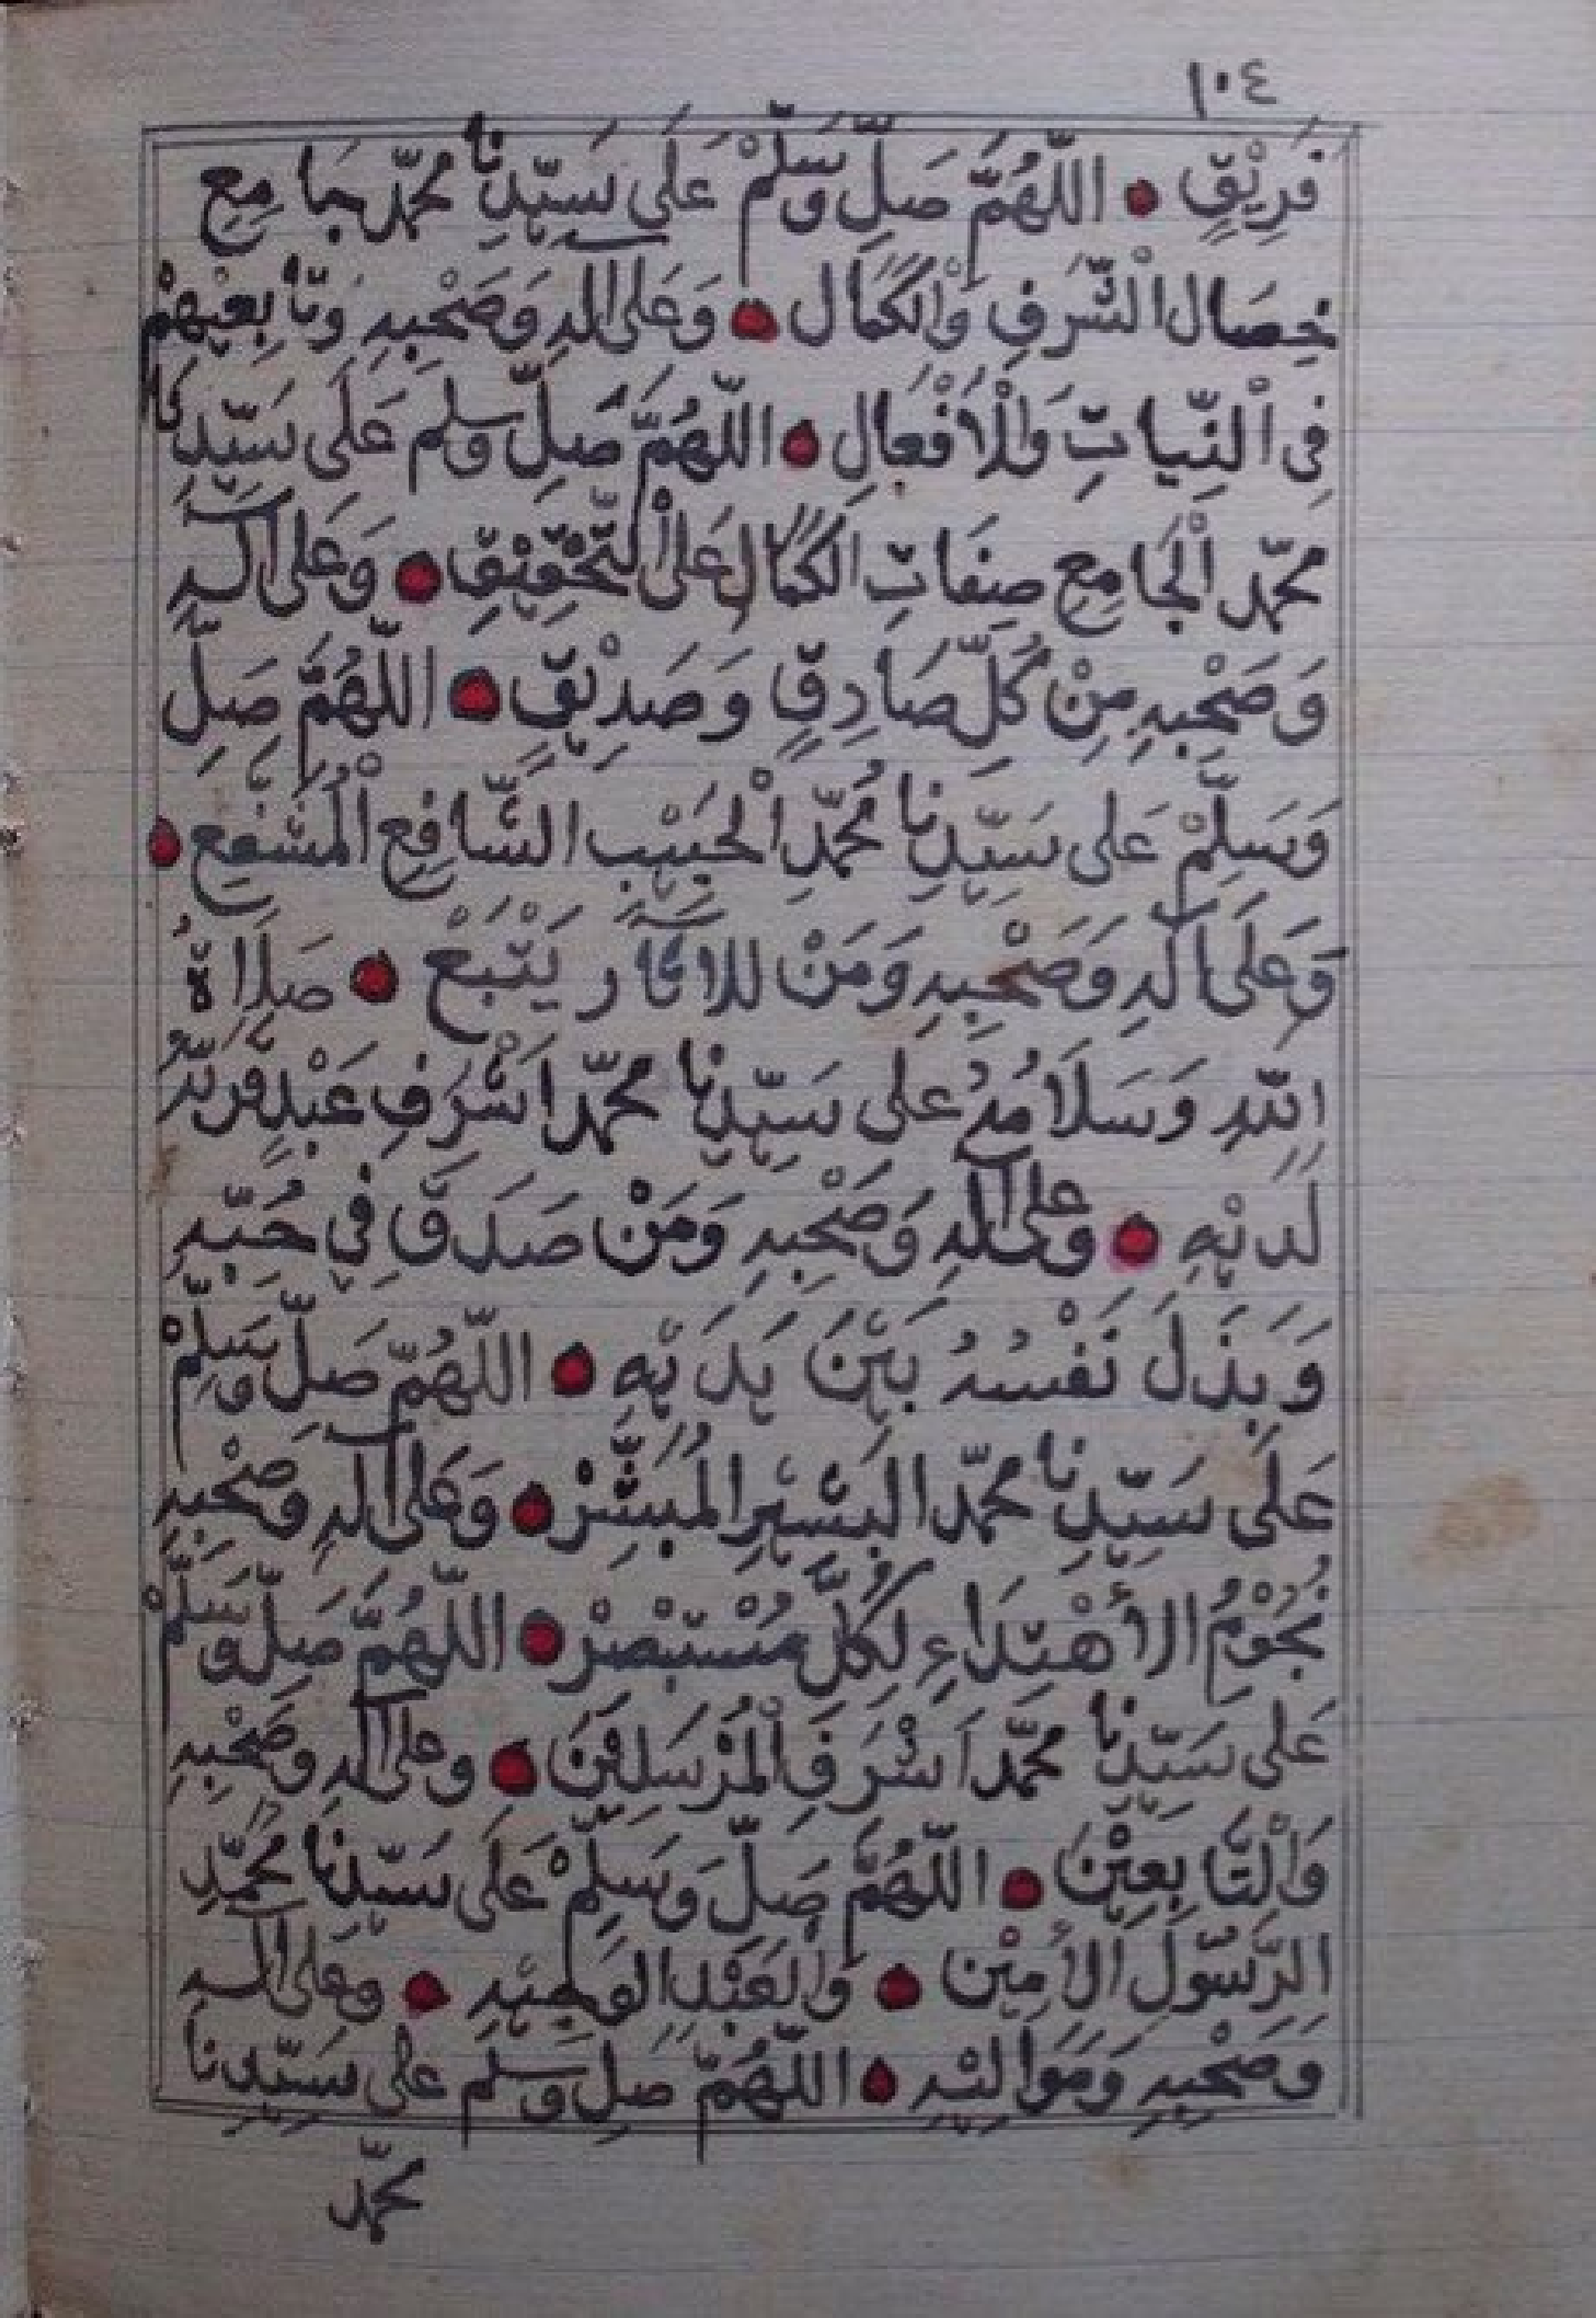 ١٠٤
فَرِيْقٍ • اللّٰهُمَّ صَلِّ وَسَلِّمْ عَلَى سَيِّدِنَا مُحَمَّد جَامِعِ
خِصَال الْشَّرَفِ وَالْكَمَال • وَعَلَى اٰلِهِ وَصَحْبِهِ وَتَابِعِيْهِمْ
فِى الْنِّيَاتِ وَالْأَفْعَالِ • اللّٰهُمَّ صَلِّ وَسلم عَلَى سَيِّدِنَا
محمّد الْجَامِعِ صِفَاتِ الكَمَال عَلَى الْتَّحْقِيْقِ • وَعَلى اٰلِهِ
وَصَحْبِهِ مِنْ كُلِّ صَادِقٍ وَصَدِيْقٍ • اللّٰهُمَّ صَلِّ
وَسَلِّمْ عَلى سَيِّدِنَا مُحَمَّدِ الْحَبِيْبِ الشَّافِعِ الْمُشَفِعِ •
وَعَلَى اٰلِهِ وَصَحْبِهِ وَمَنْ للاٰثَار يَتْبَعْ • صَلَاةُ
اللّهِ وَسَلَامُهُ عَلى سَيِّدِنَا محمّد اَشْرَفِ عَبْدٍ قَرَّبَهُ
لَدَيْهِ • وعلى اٰلِهِ وَصَحْبِهِ وَمَنْ صَدَقَ فِي حُبِّهِ
وَبَذَلَ نَفْسُهُ بَيْنَ يَدَيْهِ • اللّٰهُمَّ صَلِّ وَسَلِّمْ
عَلَى سَيِّدِنَا محمّد الْبَشِيْرِ الْمُبَشِّرْ • وَعَلَى اٰلِهِ وَصَحْبِهِ
نُجُوْمُ الأهْتِدَاءِ لِكُلِّ مُسْتَبْصِرْ • اللّٰهُمَّ صَلِّ وَسَلِّمْ
عَلى سَيِّدِنَا محمّد اَشْرَفِ الْمُرْسَلِيْنَ • وعلى اٰلِهِ وصَحْبِهِ
وَالْتَّابِعِيْنَ • اللّٰهُمَّ صَلِّ وَسَلِّمْ عَلَى سَيِّدِنَا مُحَمَّدِ
الرَّسُوْلِ الأَمِيْن • وَالْعَبْدِ الوَجِيْهِ • وَعَلَى اٰلِهِ
وَصَحْبِهِ وَمَوَالِيْهِ • اللّٰهُمَّ صَلِ وسلم على سَيِّدِنا
محمّد